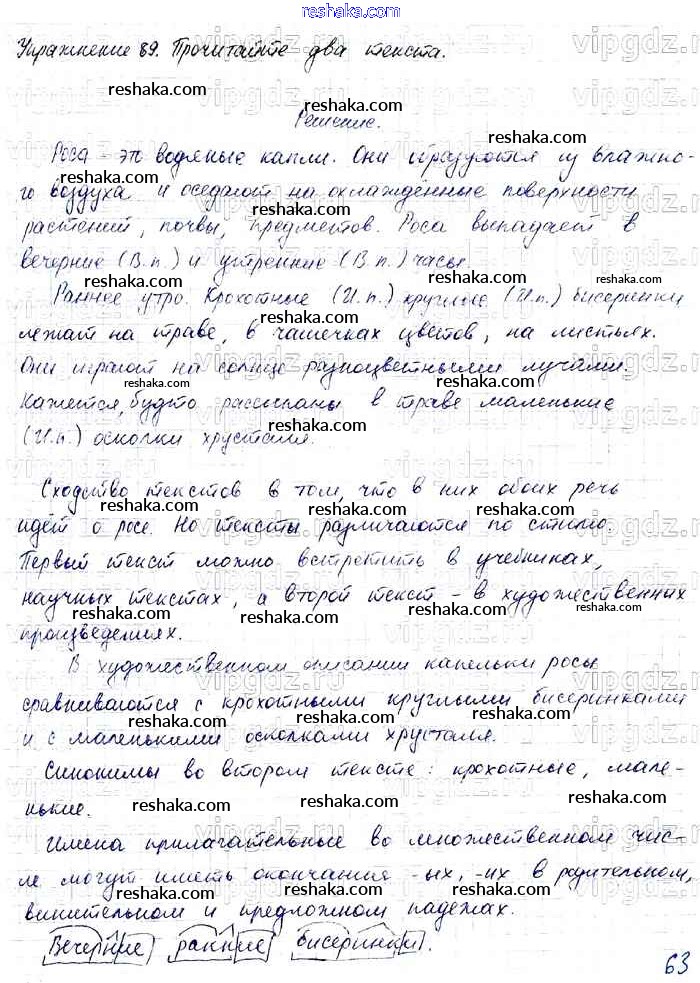 reshaka.com
Упражнение 89. Прочитайте два текста.
Решение.
Роса - это водяные капли. Они образуются из влажно-
го воздуха и оседают на охлаждённые поверхности
растений, почвы, предметов. Роса выпадает в
вечерние (В.п.) и утренние (В.п.) часы.
Раннее утро. Крохотные (И.п.) круглые (И.п.) бисеринки
лежат на траве, в чашечках цветов, на листьях.
Они играют на солнце разноцветными лучами.
Кажется, будто рассыпаны в траве маленькие
(И.п.) осколки хрусталя.
Сходство текстов в том, что в них обоих речь
идёт о росе. Но тексты различаются по стилю.
Первый текст можно встретить в учебниках,
научных текстах, а второй текст - в художественных
произведениях.
В художественном описании капельки росы
сравниваются с крохотными круглыми бисеринками
и с маленькими осколками хрусталя.
Синонимы во втором тексте: крохотные, мале-
нькие.
Имена прилагательные во множественном чис-
ле могут иметь окончание -ых, -их в родительном,
винительном и предложном падежах.
Вечерние ранние бисеринки.
63